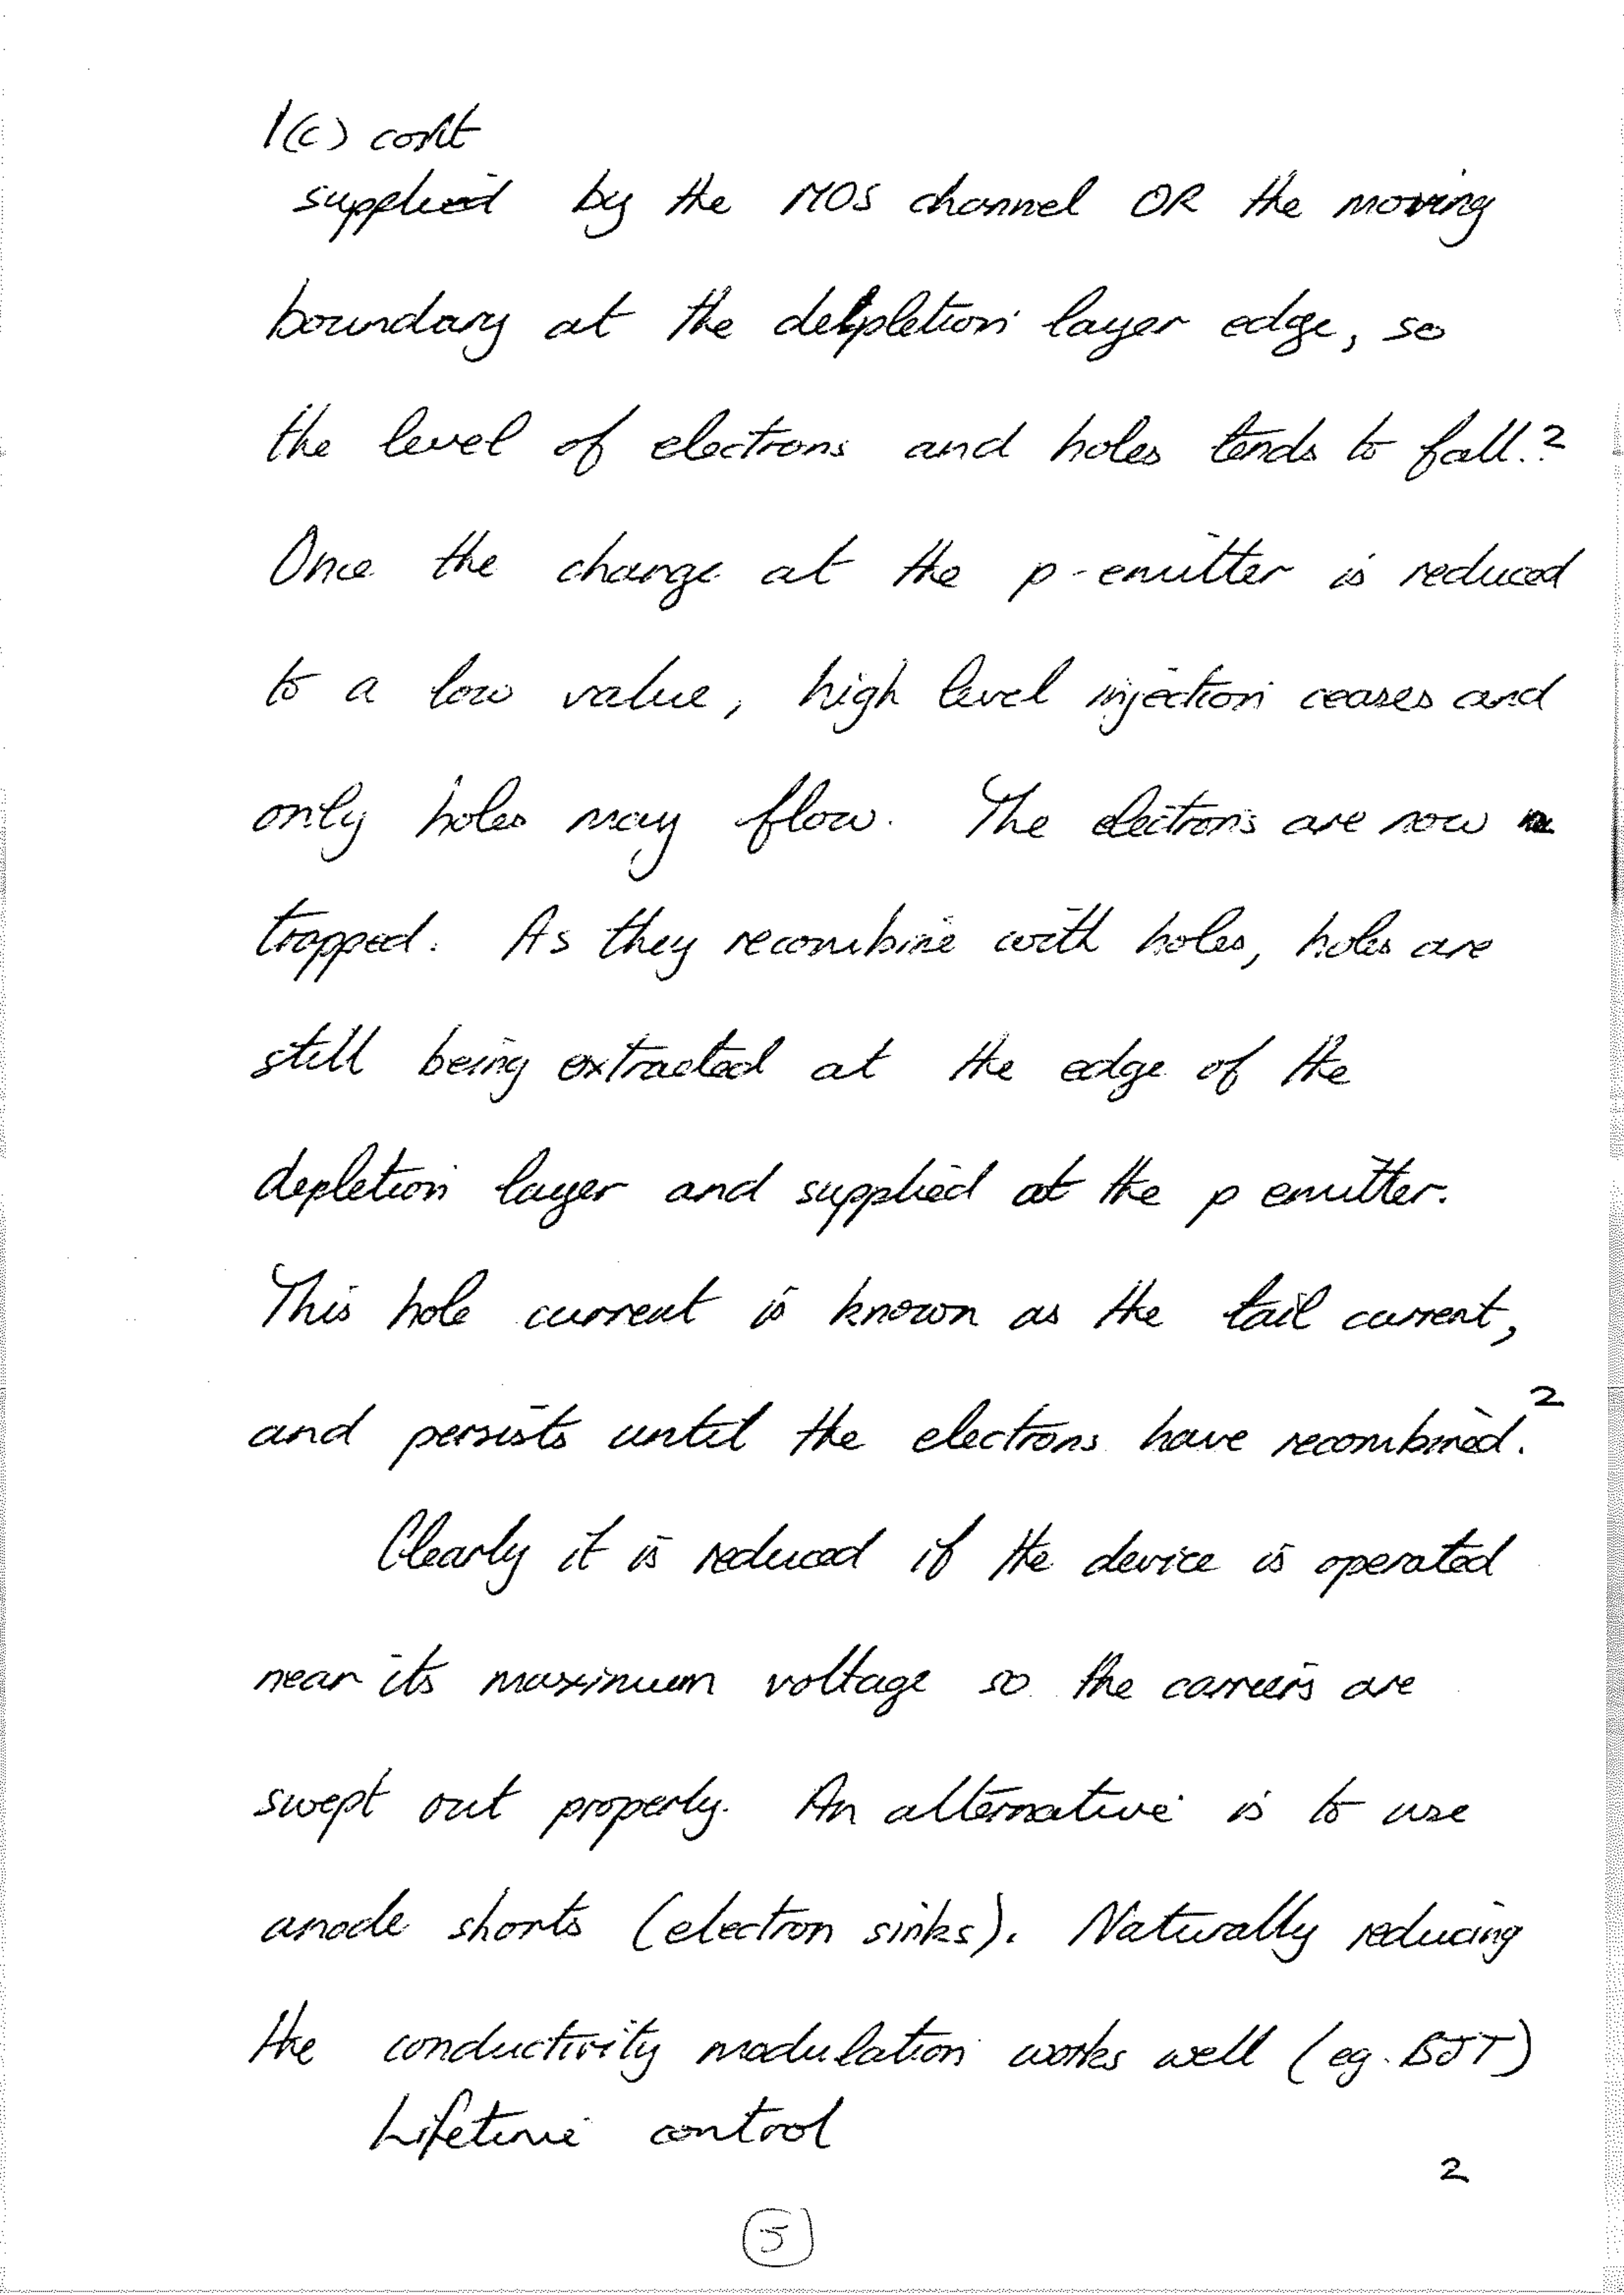 1(c) cont
supplied by the MOS channel OR the moving
boundary at the depletion layer edge, so
the level of electrons and holes tends to fall. 2
Once the charge at the p-emitter is reduced
to a low value, high level injection ceases and
only holes may flow. The electrons are now
trapped. As they recombine with holes, holes are
still being extracted at the edge of the
depletion layer and supplied at the p emitter.
This hole current is known as the tail current,
and persists until the electrons have recombined. 2
Clearly it is reduced if the device is operated
near its maximum voltage so the carriers are
swept out properly. An alternative is to use
anode shorts (electron sinks). Naturally reducing
the conductivity modulation works well (eg. BJT)
Lifetime control
2
5